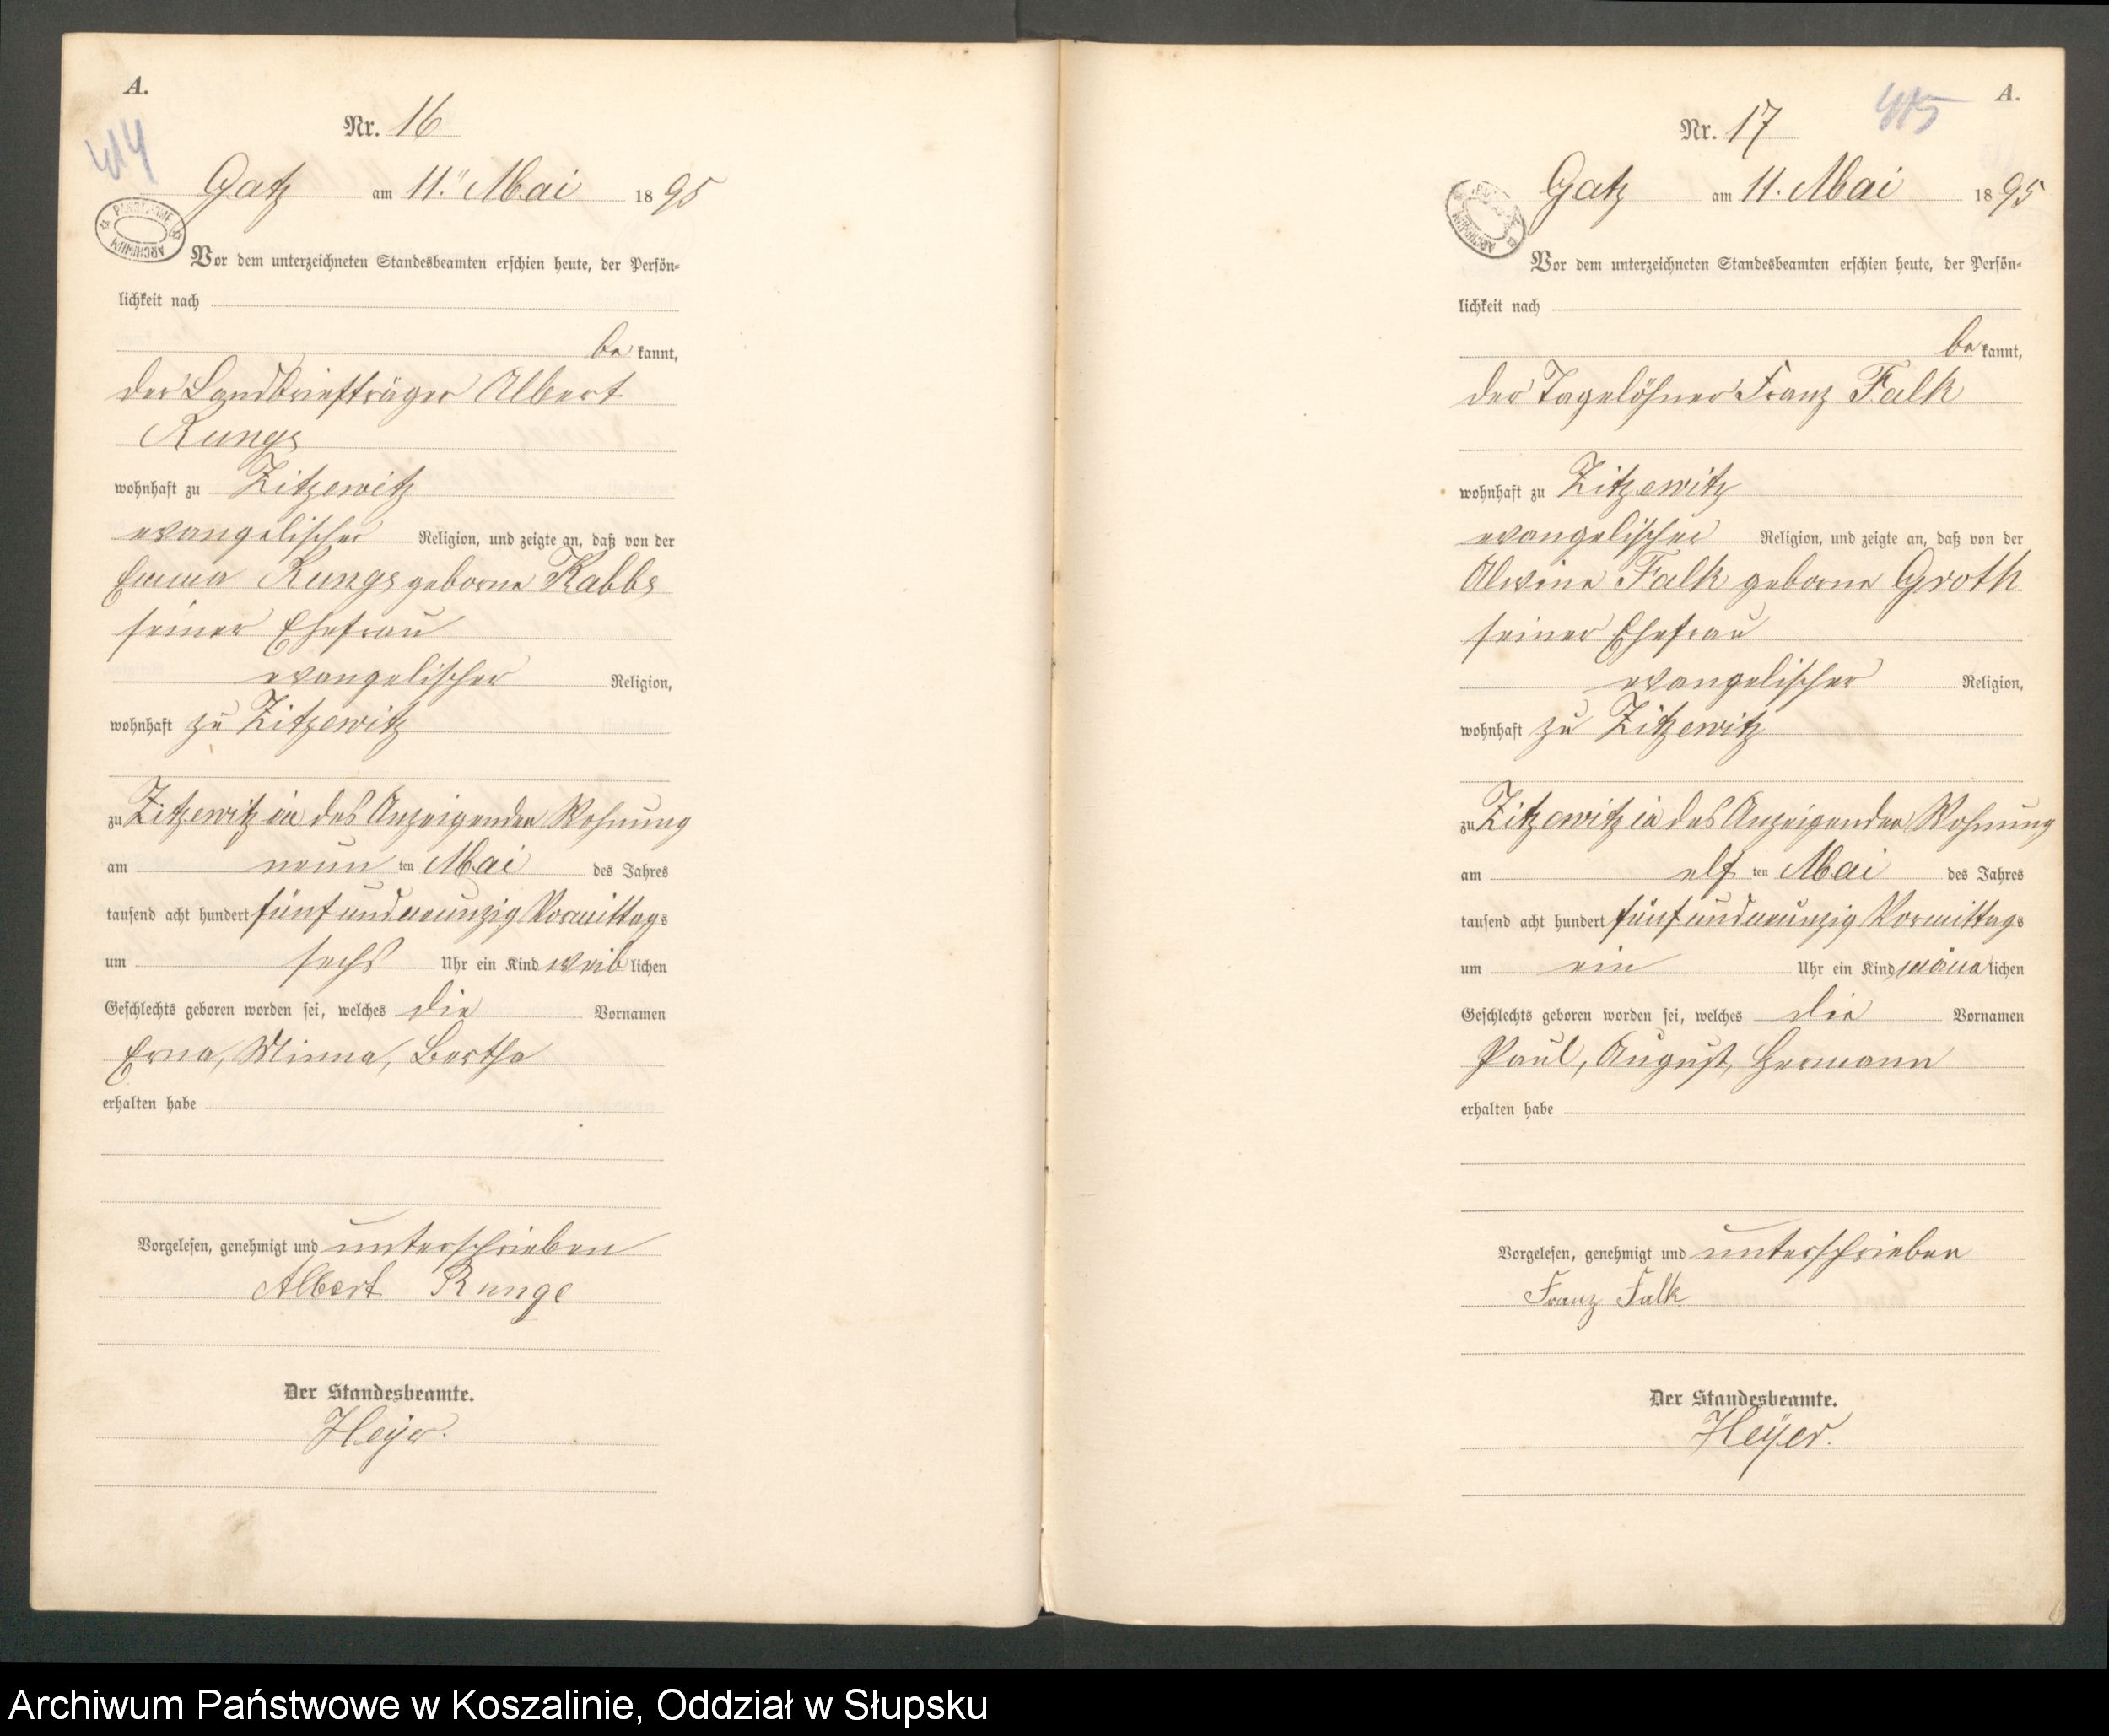 A.
414
Nr. 16
Gatz am 11. Mai 1895
ARCHIWUM
Vor dem unterzeichneten Standesbeamten erschien heute, der Persön-
lichkeit nach
be kannt,
der Landbriefträger Albert
Runge
wohnhaft zu Zitzewitz
evangelischer Religion, und zeigte an, daß von der
Emma Runge geborne Rabbe
seiner Ehefrau
evangelischer Religion,
wohnhaft zu Zitzewitz
zu Zitzewitz in des Anzeigenden Wohnung
am neun ten Mai des Jahres
tausend acht hundert fünfundneunzig Vormittags
um sechs Uhr ein Kind weib lichen
Geschlechts geboren worden sei, welches die Vornamen
Erna, Minna, Bertha
erhalten habe
Vorgelesen, genehmigt und unterschrieben
Albert Runge
Der Standesbeamte.
Heyer.
A.
415
Nr. 17
Gatz am 11. Mai 1895
ARCHIWUM
Vor dem unterzeichneten Standesbeamten erschien heute, der Persön-
lichkeit nach
be kannt,
der Tagelöhner Franz Falk
wohnhaft zu Zitzewitz
evangelischer Religion, und zeigte an, daß von der
Alwine Falk geborne Groth
seiner Ehefrau
evangelischer Religion,
wohnhaft zu Zitzewitz
zu Zitzewitz in des Anzeigenden Wohnung
am elf ten Mai des Jahres
tausend acht hundert fünfundneunzig Vormittags
um ein Uhr ein Kind männ lichen
Geschlechts geboren worden sei, welches die Vornamen
Paul, August, Hermann
erhalten habe
Vorgelesen, genehmigt und unterschrieben
Franz Falk
Der Standesbeamte.
Heyer.
Archiwum Państwowe w Koszalinie, Oddział w Słupsku